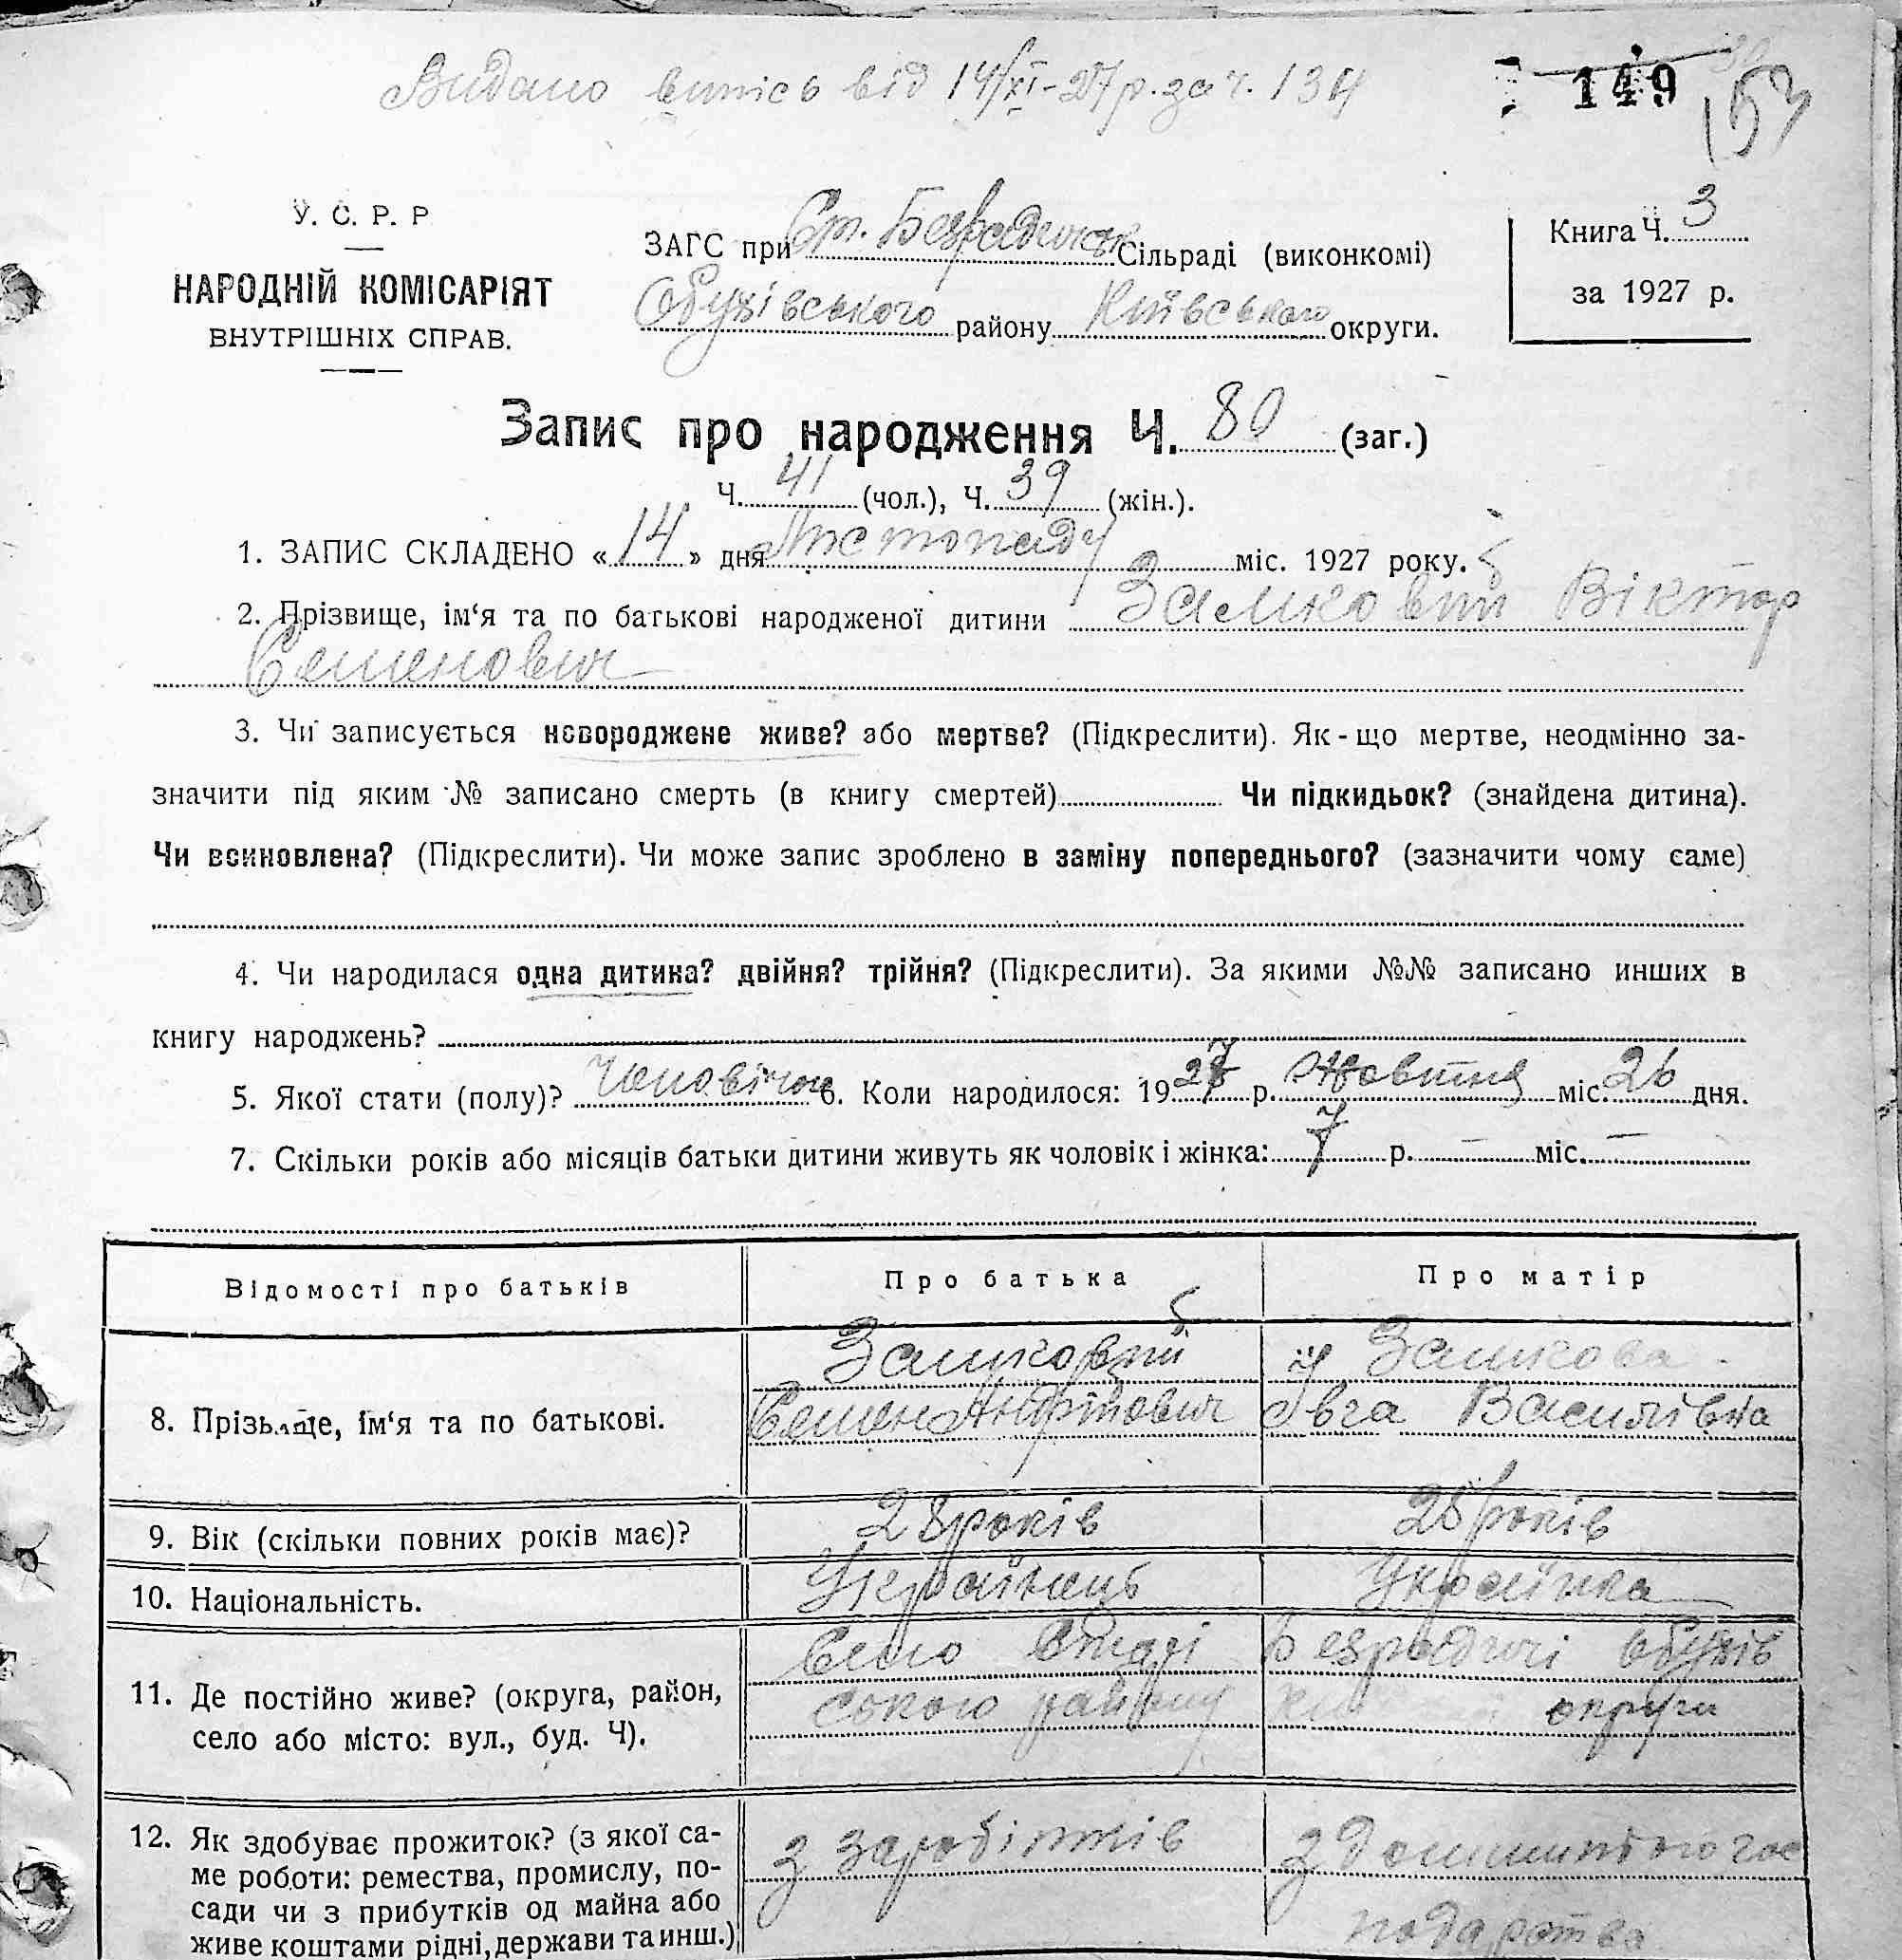 Видано витісь від 14/XI-27р. за ч. 134
149
У. С. Р. Р
НАРОДНІЙ КОМІСАРІЯТ
ВНУТРІШНІХ СПРАВ.
ЗАГС при Ст. Безрадицьк Сільраді (виконкомі)
Обухівського району Київського округи.
Книга Ч. 3
за 1927 р.
Запис про народження Ч. 80 (заг.)
Ч. 41 (чол.), Ч. 39 (жін.).
1. ЗАПИС СКЛАДЕНО «14» дня Листопаду міс. 1927 року.
2. Прізвище, ім‘я та по батькові народженої дитини Замковий Віктор
Семенович
3. Чи записується новороджене живе? або мертве? (Підкреслити). Як-що мертве, неодмінно за-
значити під яким № записано смерть (в книгу смертей) Чи підкидьок? (знайдена дитина).
Чи всиновлена? (Підкреслити). Чи може запис зроблено в заміну попереднього? (зазначити чому саме)
4. Чи народилася одна дитина? двійня? трійня? (Підкреслити). За якими №№ записано инших в
книгу народжень?
5. Якої стати (полу)? Чоловічої 6. Коли народилося: 1927 р. Жовтня міс. 26 дня.
7. Скільки років або місяців батьки дитини живуть як чоловік і жінка: 7 р. — міс. —
Відомості про батьків Про батька Про матір
8. Прізвище, ім‘я та по батькові.
Замковий
Семен
Замкова
Івга Василівна
9. Вік (скільки повних років має)? 28 років 28 років
10. Національність. Українець Українка
11. Де постійно живе? (округа, район,
село або місто: вул., буд. Ч).
Село Старі Безрадичі Обухів
ського району округи
12. Як здобуває прожиток? (з якої са-
ме роботи: ремества, промислу, по-
сади чи з прибутків од майна або
живе коштами рідні, держави та инш.)
з заробітків
з домашнього гос
подарства